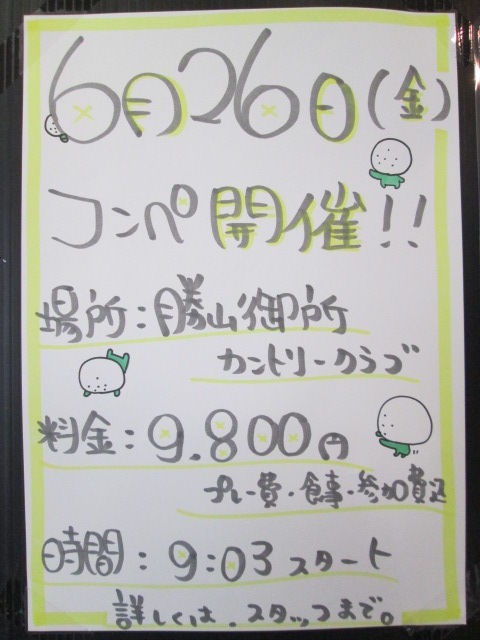 6月26日(金)
コンペ開催!!
場所:勝山御所
カントリークラブ
料金:9.800円
プレー費・食事・参加費込
時間:9:03スタート
詳しくは、スタッフまで。